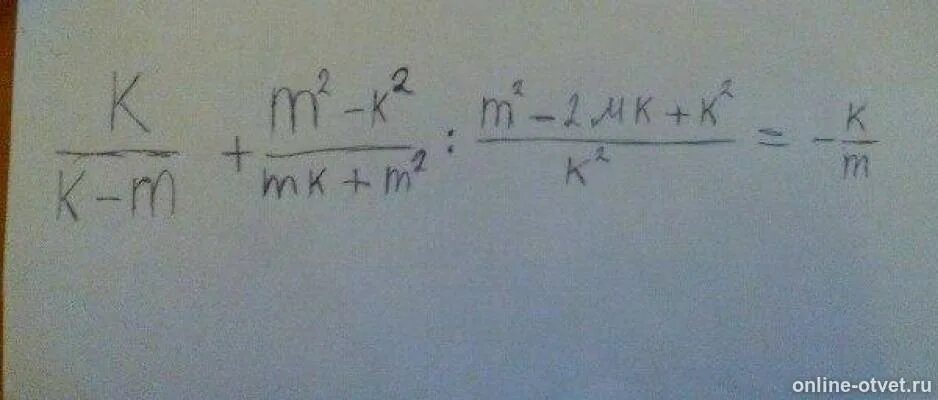 K/(K-m) + (m²-k²)/(mk+m²) : (m²-2мк+k²)/k² = -k/m
online-otvet.ru